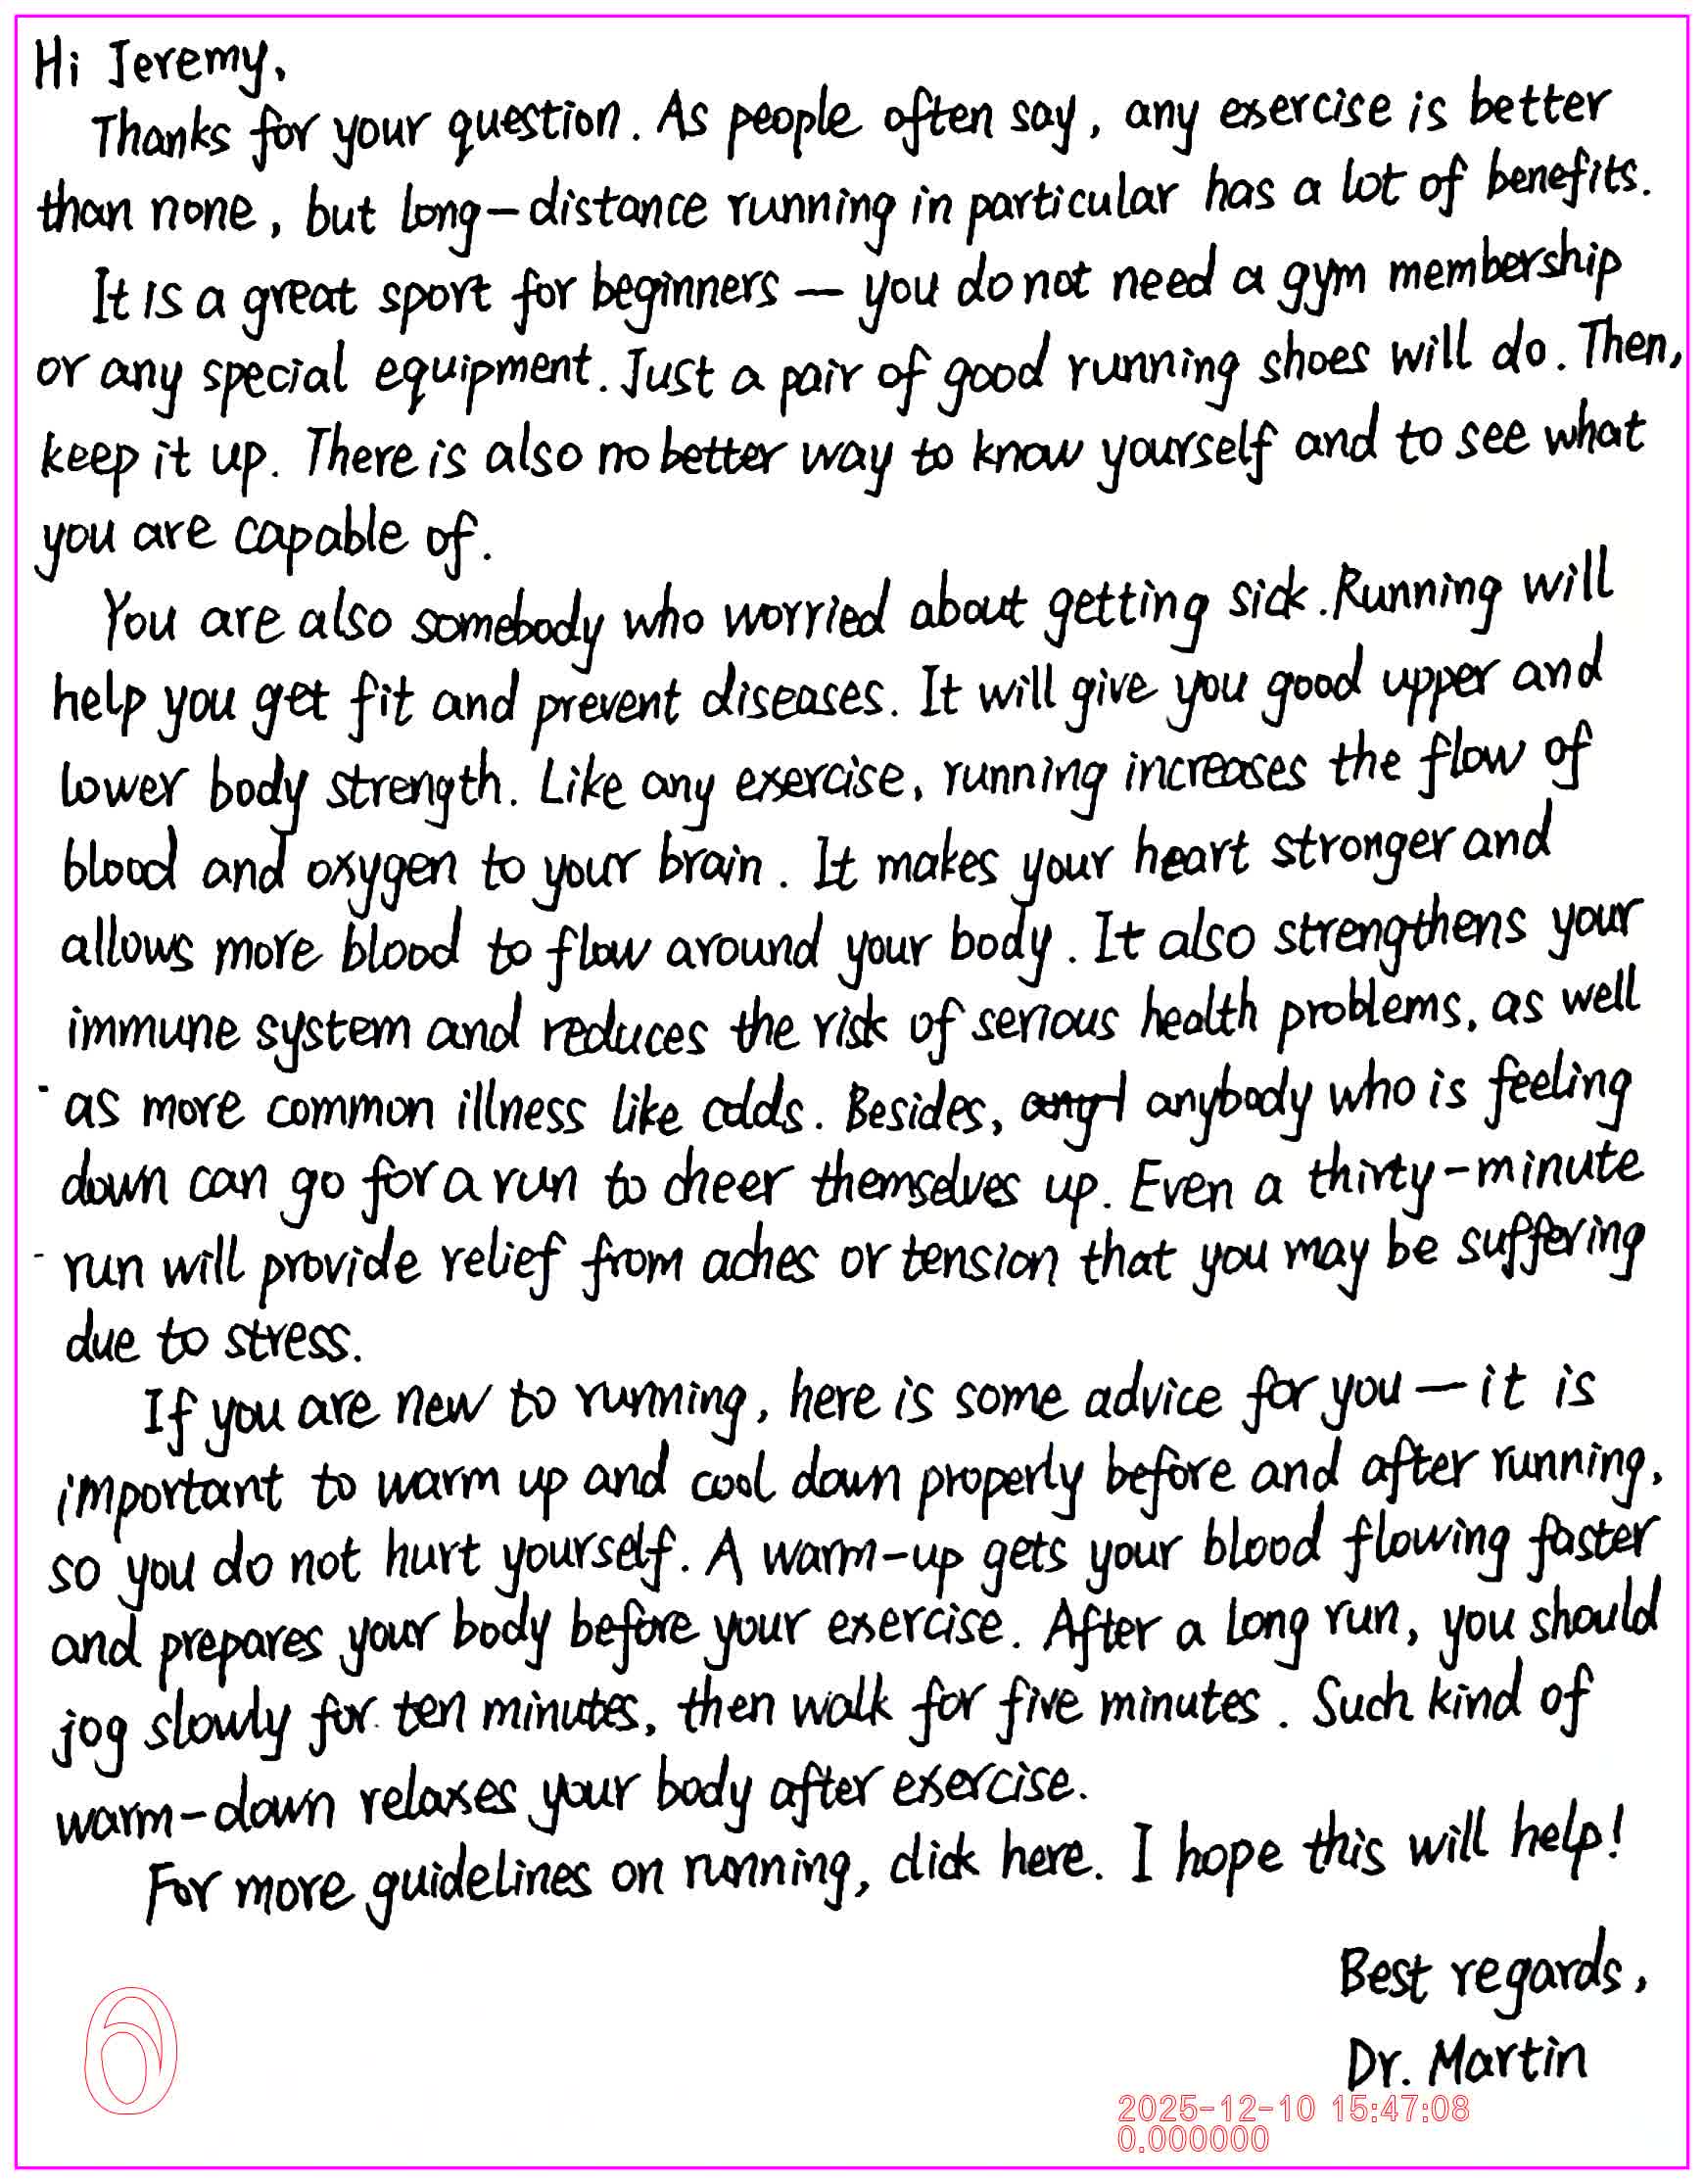 Hi Jeremy,
Thanks for your question. As people often say, any exercise is better
than none, but long-distance running in particular has a lot of benefits.
It is a great sport for beginners — you do not need a gym membership
or any special equipment. Just a pair of good running shoes will do. Then,
keep it up. There is also no better way to know yourself and to see what
you are capable of.
You are also somebody who worried about getting sick. Running will
help you get fit and prevent diseases. It will give you good upper and
lower body strength. Like any exercise, running increases the flow of
blood and oxygen to your brain. It makes your heart stronger and
allows more blood to flow around your body. It also strengthens your
immune system and reduces the risk of serious health problems, as well
as more common illness like colds. Besides, anybody who is feeling
down can go for a run to cheer themselves up. Even a thirty-minute
run will provide relief from aches or tension that you may be suffering
due to stress.
If you are new to running, here is some advice for you — it is
important to warm up and cool down properly before and after running,
so you do not hurt yourself. A warm-up gets your blood flowing faster
and prepares your body before your exercise. After a long run, you should
jog slowly for ten minutes, then walk for five minutes. Such kind of
warm-down relaxes your body after exercise.
For more guidelines on running, click here. I hope this will help!
Best regards,
Dr. Martin
6
2025-12-10 15:47:08
0.000000